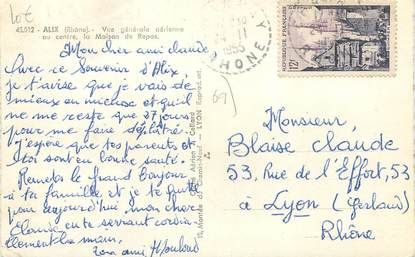 10€
45.012 - ALIX (Rhône). - Vue générale aérienne
au centre, la Maison de Repos.
Mon cher ami claude
Avec ce Souvenir d'Alix,
je t'avise que je vais de
mieux en mieux et qu'il
ne me reste que 37 jours
pour me faire déplâtré.
J'espère que tes parents et
toi sont en bonne santé.
Remets le grand bonjour
à ta famille et je te quitte
pour aujourd'hui, mon cher
Claude en te serrant cordia-
llement la main,
ton ami
LYON
RHONE
1955
REPUBLIQUE FRANÇAISE
12F
69
Monsieur,
Blaise claude
53, Rue de l'Effort, 53
à Lyon (Gerland)
Rhône